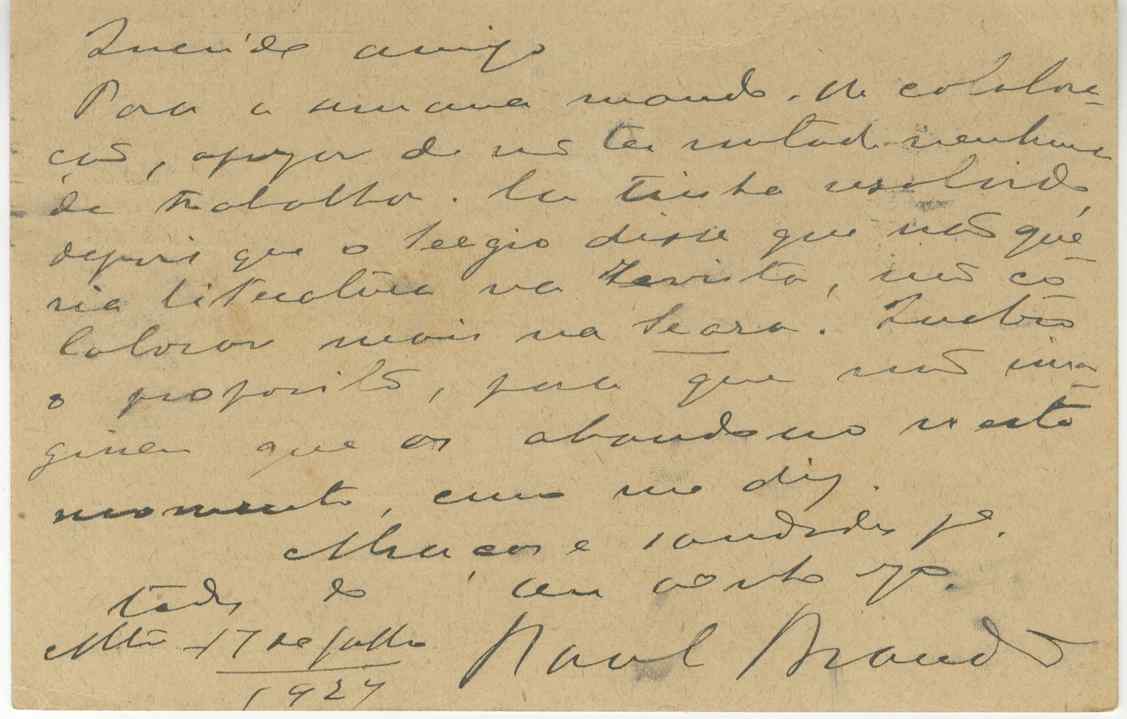 Querido amigo
Para a semana mando-lhe colabora-
ção, apezar de não ter notado nenhuma
de trabalho. Eu tinha resolvido,
depois que o Sergio disse que não que-
ria literatura na Revista, não co-
laborar mais na Seara. Quebro
o proposito, para que não ima-
ginem que os abandono neste
momento, como me diz.
Abraços e saudades pª.
todos do seu velho
Alto 17 de Julho Raul Brandão
1927